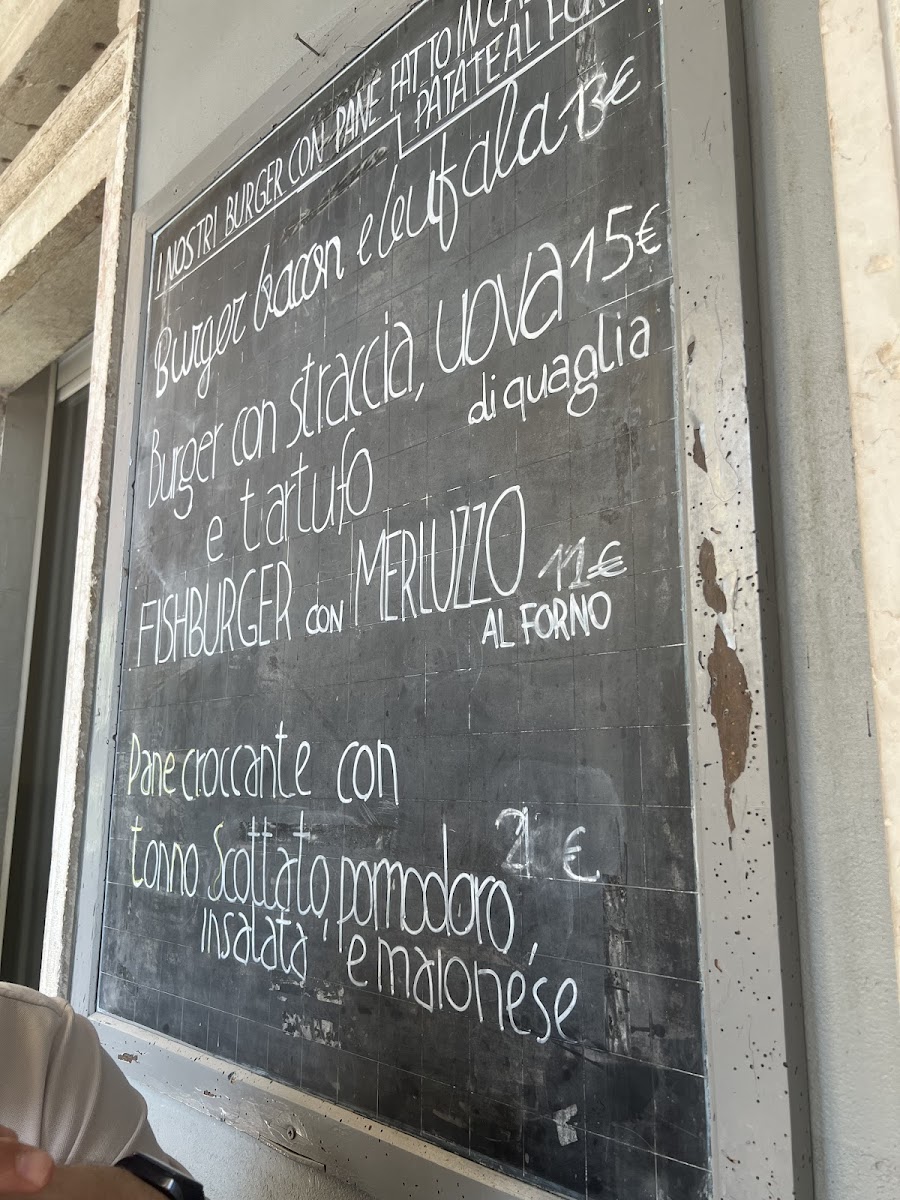 I NOSTRI BURGER CON PANE FATTO IN
PATATE AL
Burger bacon e bufala 13€
Burger con straccia, UOVA 15€
di quaglia
e tartufo
FISHBURGER CON MERLUZZO 11€
AL FORNO
Pane croccante con
tonno Scottato, pomodoro, €
insalata e maionese